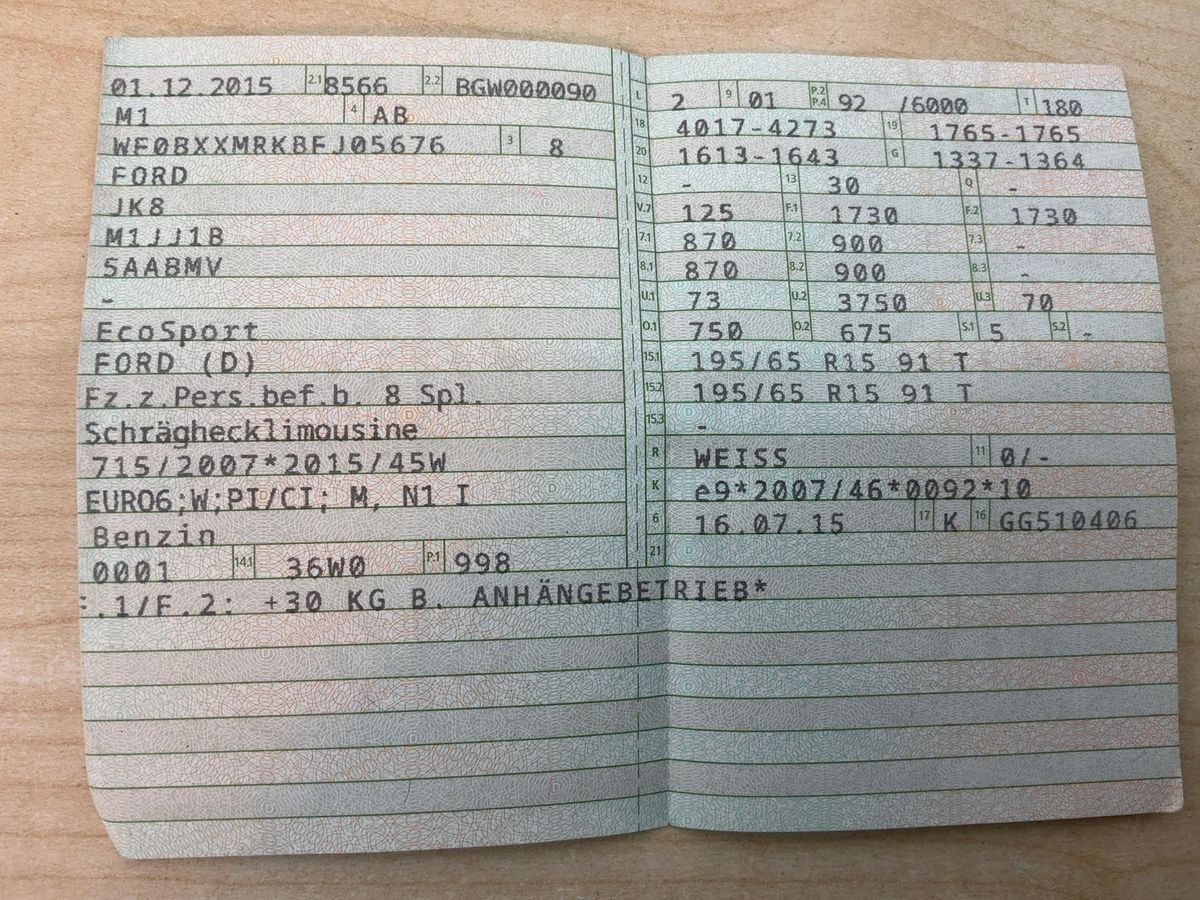 01.12.2015 2.1 8566 2.2 BGW000090
M1 4 AB
WF0BXXMRK8FJ05676 3 8
FORD
JK8
M1JJ1B
5AABMV
-
EcoSport
FORD (D)
Fz.z.Pers.bef.b. 8 Spl.
Schräghecklimousine
715/2007*2015/45W
EURO6;W;PI/CI; M, N1 I
Benzin
0001 14.1 36W0 P.1 998
F.1/F.2: +30 KG B. ANHÄNGEBETRIEB*
L 2 9 01 P.2 P.4 92 /6000 T 180
18 4017-4273 19 1765-1765
20 1613-1643 G 1337-1364
12 - 13 30 Q -
V.7 125 F.1 1730 F.2 1730
7.1 870 7.2 900 7.3 -
8.1 870 8.2 900 8.3 -
U.1 73 U.2 3750 U.3 70
O.1 750 O.2 675 S.1 5 S.2 -
15.1 195/65 R15 91 T
15.2 195/65 R15 91 T
15.3 -
R WEISS 11 0/-
K e9*2007/46*0092*10
6 16.07.15 17 K 16 GG510406
21